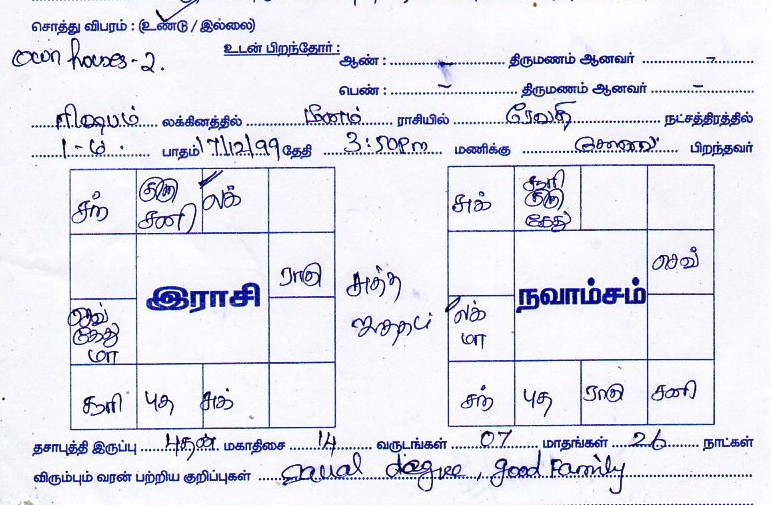 சொத்து விபரம் : (உண்டு / இல்லை)
own houses - 2. உடன் பிறந்தோர் :
ஆண் : - திருமணம் ஆனவர் -
பெண் : - திருமணம் ஆனவர் -
ரிஷபம் லக்கினத்தில் மீனம் ராசியில் ரேவதி நட்சத்திரத்தில்
1-ம் பாதம் 17/12/99 தேதி 3:50pm மணிக்கு சென்னை பிறந்தவர்
சந் குரு சனி லக்
ராகு
செவ் கேது மா
சூரி புத சுக்
இராசி
சுக் சூரி குரு கேது
செவ்
லக் மா
சந் புத ராகு சனி
நவாம்சம்
சுத்த
தசாபுத்தி இருப்பு புதன் மகாதிசை 14 வருடங்கள் 07 மாதங்கள் 26 நாட்கள்
விரும்பும் வரன் பற்றிய குறிப்புகள் equal degree, good Family